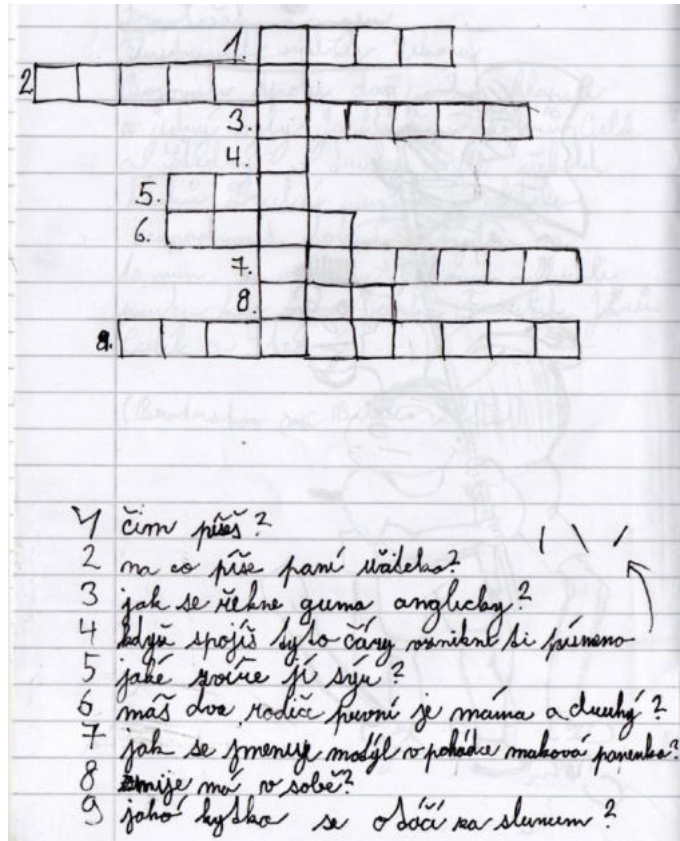 1.
2
3.
4.
5.
6.
7.
8.
9.
1 čím píšeš?
2 na co píše paní učitelka?
3 jak se řekne guma anglicky?
4 když spojíš tyto čáry vznikne ti písmeno
5 jaké zvíře jí sýr?
6 máš dva rodiče první je máma a druhý?
7 jak se jmenuje motýl v pohádce maková panenka?
8 zmije má v sobě?
9 jaká kytka se otáčí za sluncem?